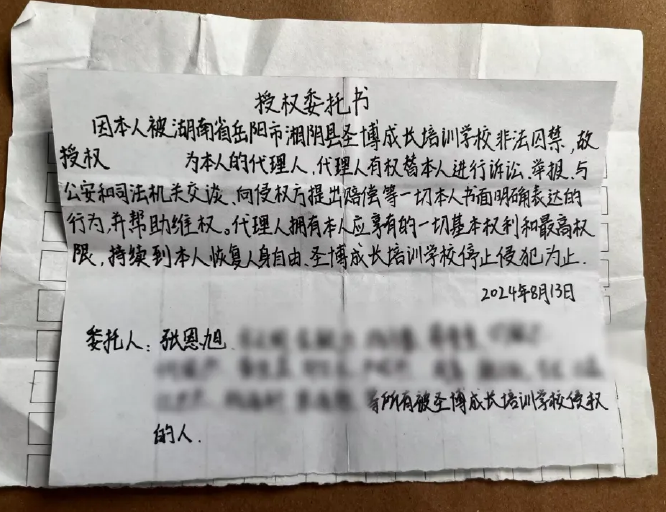 授权委托书
因本人被湖南省岳阳市湘阴县圣博成长培训学校非法囚禁,故
授权 为本人的代理人,代理人有权替本人进行诉讼、举报、与
公安和司法机关交谈、向侵权方提出赔偿等一切本人书面明确表达的
行为,并帮助维权。代理人拥有本人应享有的一切基本权利和最高权
限,持续到本人恢复人身自由、圣博成长培训学校停止侵犯为止.
2024年8月13日
委托人:张恩旭
等所有被圣博成长培训学校侵权
的人.